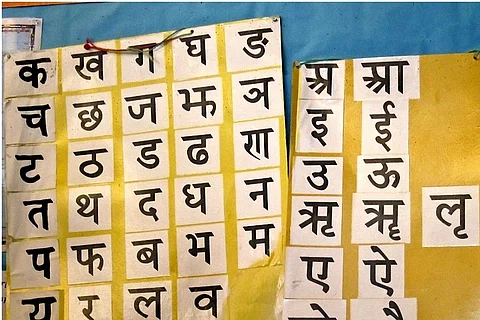 क ख ग घ ङ
च छ ज झ ञ
ट ठ ड ढ ण
त थ द ध न
प फ ब भ म
य र ल व
अ आ
इ ई
उ ऊ
ऋ ॠ ऌ
ए ऐ